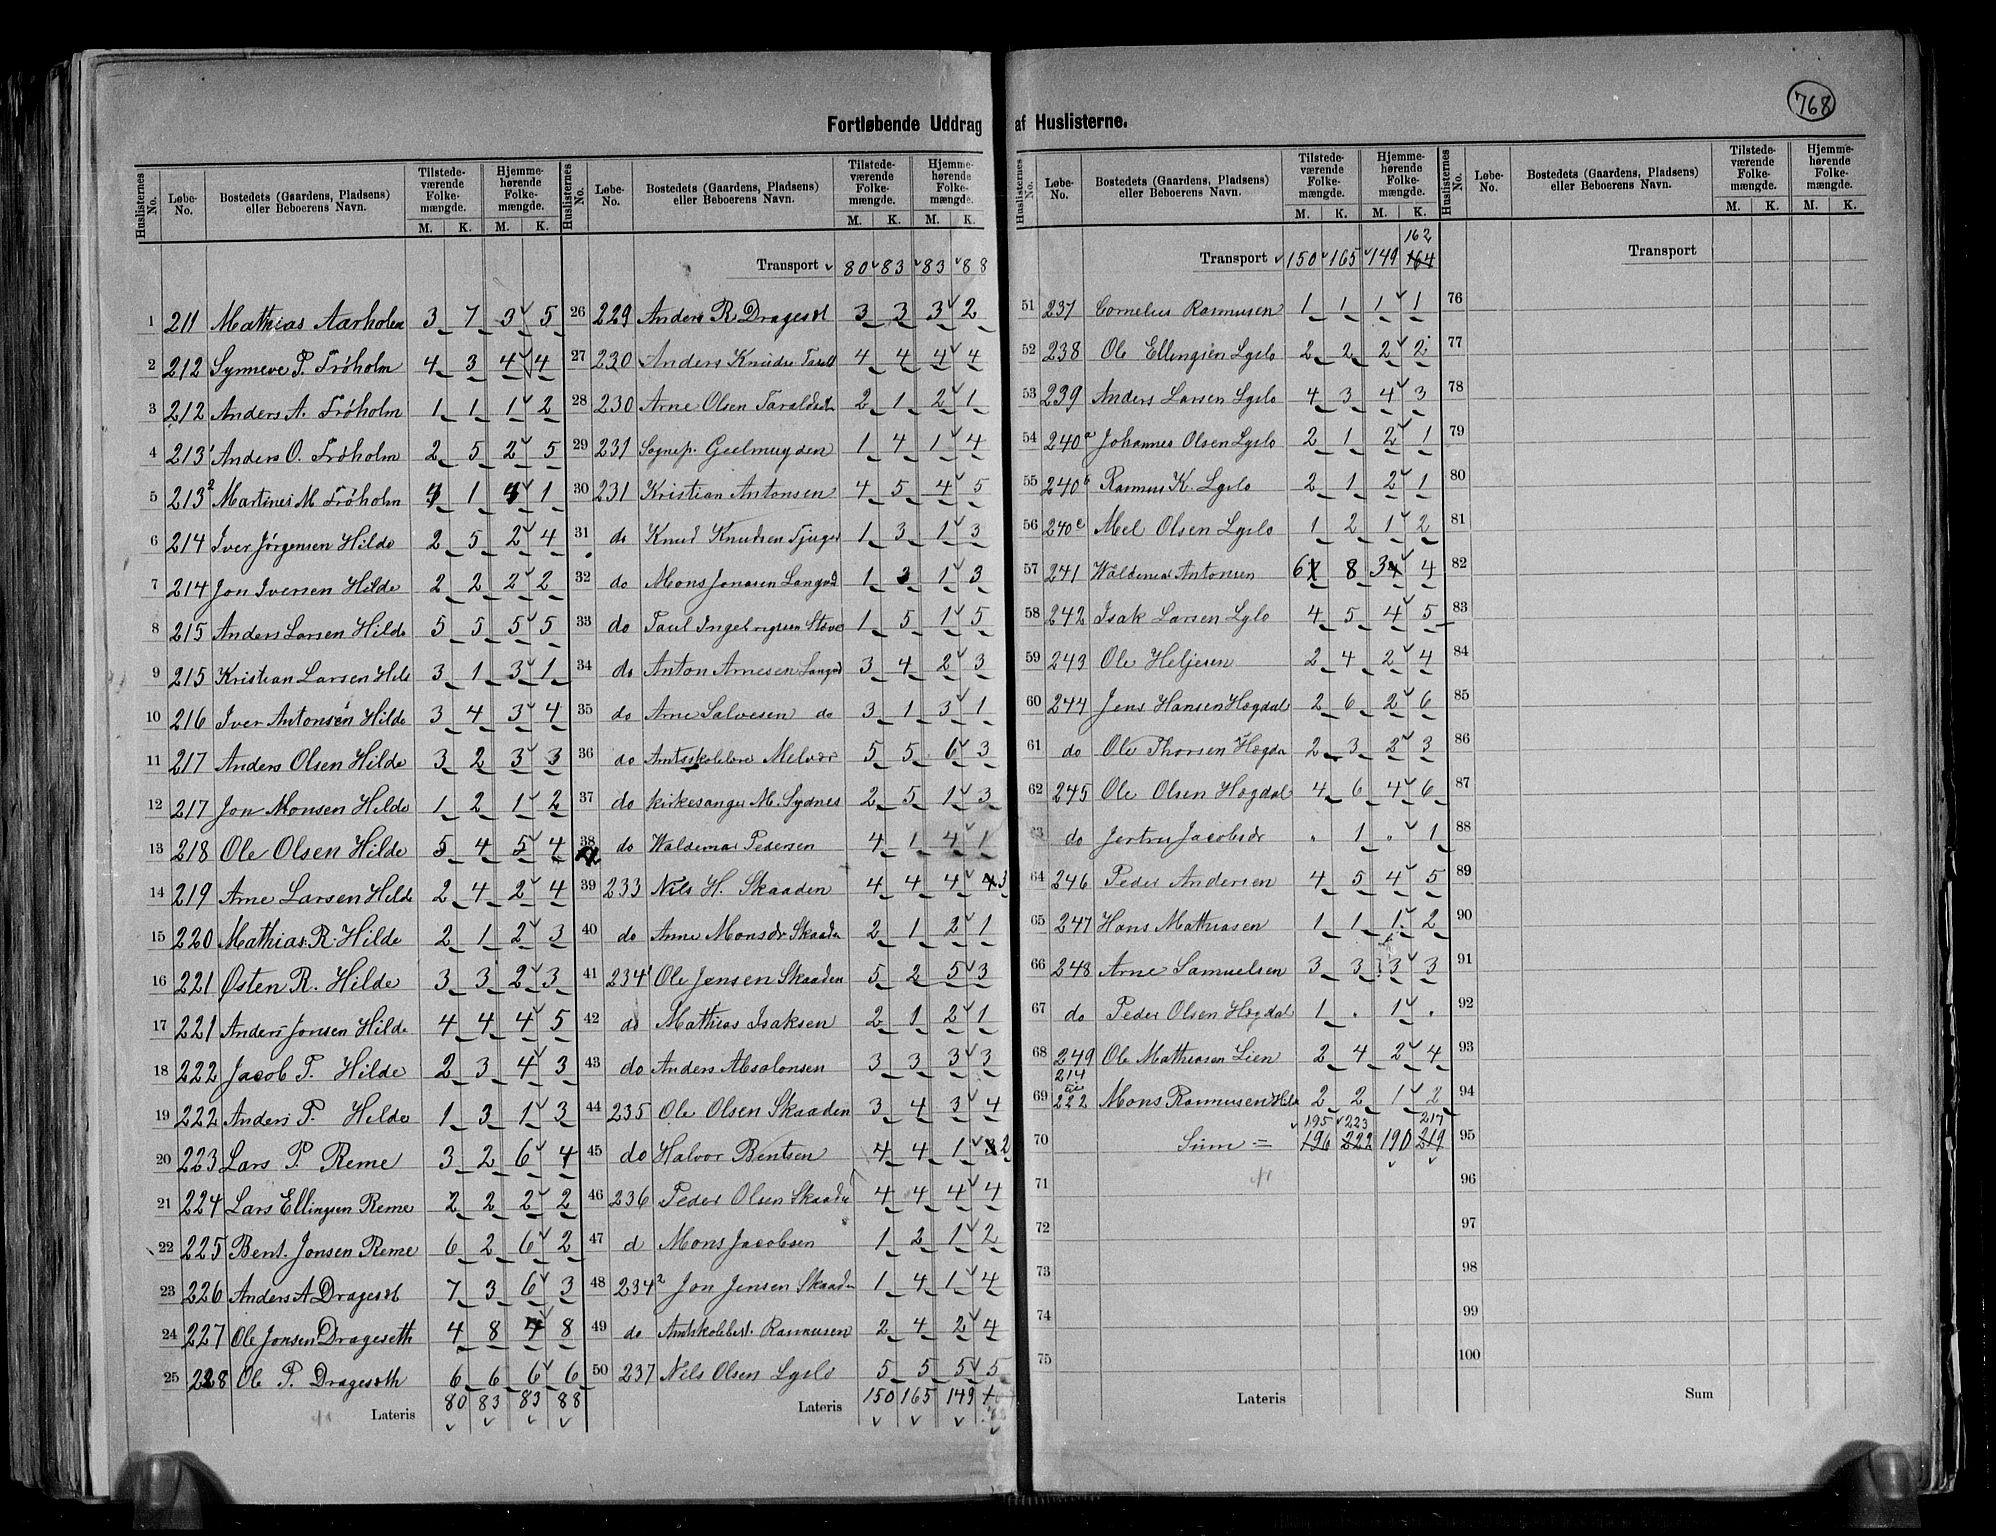 768
Fortløbende Uddrag af Huslisterne.
Huslisternes No. Løbe-No. Bostedets (Gaardens, Pladsens) eller Beboerens Navn. Tilstedeværende Folkemængde. M. K. Hjemmehørende Folkemængde. M. K.
1 211 Mathias Aarholm 3 7 3 5
2 212 Synneve P. Frøholm 4 3 4 4
3 212 Anders A. Frøholm 1 1 1 2
4 213¹ Anders O. Frøholm 2 5 2 5
5 213² Martines M Frøholm 1 1
6 214 Iver Jørgensen Hilde 2 5 2 4
7 214 Jon Iversen Hilde 2 2 2 2
8 215 Anders Larsen Hilde 5 5 5 5
9 215 Kristian Larsen Hild 3 1 3 1
10 216 Iver Antonsen Hilde 3 4 3 4
11 217 Anders Olsen Hilde 3 2 3 3
12 217 Jon Monsen Hilde 1 2 1 2
13 218 Ole Olsen Hilde 5 4 5 4
14 219 Arne Larsen Hilde 2 4 2 4
15 220 Mathias R. Hilde 2 1 2 3
16 221 Østen R. Hilde 3 3 2 3
17 221 Anders Jonsen Hilde 4 4 4 5
18 222 Jacob P. Hilde 2 3 4 3
19 222 Anders P. Hilde 1 3 1 3
20 223 Lars P. Reme 3 2 6 4
21 224 Lars Ellingsen Reme 2 2 2 2
22 225 Bent. Jonsen Reme 6 2 6 2
23 226 Anders A Drageset 7 3 6 3
24 227 Ole Jonsen Drageseth 4 8 4 8
25 228 Ole P. Drageseth 6 6 6 6
Lateris 80 83 83 88
Huslisternes No. Løbe-No. Bostedets (Gaardens, Pladsens) eller Beboerens Navn. Tilstedeværende Folkemængde. M. K. Hjemmehørende Folkemængde. M. K.
Transport 80 83 83 88
26 229 Anders R Drageset 3 3 3 2
27 230 Anders Knudsen 4 4 4 4
28 230 Arne Olsen Taraldset 2 1 2 1
29 231 Sognep. Geelmuyden 1 4 1 4
30 231 Kristian Antonsen 4 5 4 5
31 do Knud Knudsen 1 3 1 3
32 do Mons Jonasen 1 3 1 3
33 do Paul 1 5 1 5
34 do Anton Arnesen 3 4 2 3
35 do Arne Salvesen do 3 1 3 1
36 do Amtsskolelærer Melvær 5 5 6 3
37 do Kirkesanger M. Sydnes 2 5 1 3
38 do Waldemar Pedersen 4 1 4 1
39 233 Nils H. Skaaden 4 4 4 4 3
40 do Anne Monsdr Skaaden 2 1 2 1
41 234¹ Ole Jensen Skaaden 5 2 5 3
42 do Mathias Isaksen 2 1 2 1
43 do Anders Absalonsen 3 3 3 3
44 235 Ole Olsen Skaaden 3 4 3 4
45 do Halvor Bentsen 4 4 1 2
46 236 Peder Olsen Skaaden 4 4 4 4
47 d Mons Jacobsen 1 2 1 2
48 234² Jon Jensen Skaaden 1 4 1 4
49 do Amtskolebest. Rasmusen 2 4 2 4
50 237 Nils Olsen Lyslo 5 5 5 5
Lateris 150 165 149
Huslisternes No. Løbe-No. Bostedets (Gaardens, Pladsens) eller Beboerens Navn. Tilstedeværende Folkemængde. M. K. Hjemmehørende Folkemængde. M. K.
162
Transport 150 165 149 164
51 237 Cornelius Rasmusen 1 1 1 1
52 238 Ole Ellingsen Lyslo 2 2 2 2
53 239 Anders Larsen Lyslo 4 3 4 3
54 240a Johannes Olsen Lyslo 2 1 2 1
55 240b Rasmus K. Lyslo 2 1 2 1
56 240c Mel Olsen Lyslo 1 2 1 2
57 241 Waldemar Antonsen 6 8 3 4
58 242 Isak Larsen Lyslo 4 5 4 5
59 243 Ole Heljesen 2 4 2 4
60 244 Jens Hansen Hogdal 2 6 2 6
61 do Ole Thorsen Hogda 2 3 2 3
62 245 Ole Olsen Hogdal 4 6 4 6
63 do Jertru Jacobsdr " 1 " 1
64 246 Peder Andersen 4 5 4 5
65 247 Hans Mathiasen 1 1 1 2
66 248 Arne Samuelsen 3 3 3 3
67 do Peder Olsen Hogdal 1 . 1 .
68 249 Ole Mathiasen Lien 2 4 2 4
69 214 til 222 Mons Rasmusen Hilde 2 2 1 2
195 223 217
70 Sum = 196 222 190 219
71
72
73
74
75
Lateris
Huslisternes No. Løbe-No. Bostedets (Gaardens, Pladsens) eller Beboerens Navn. Tilstedeværende Folkemængde. M. K. Hjemmehørende Folkemængde. M. K.
Transport
76
77
78
79
80
81
82
83
84
85
86
87
88
89
90
91
92
93
94
95
96
97
98
99
100
Sum